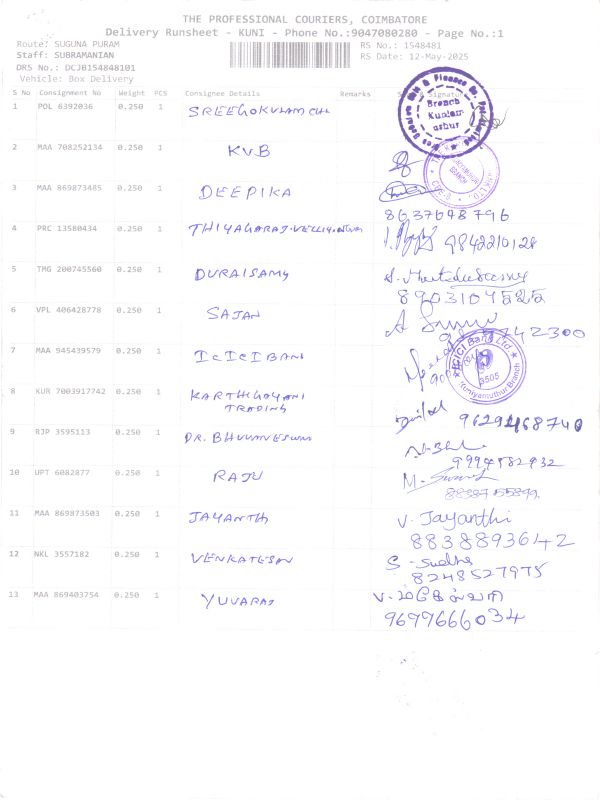 THE PROFESSIONAL COURIERS, COIMBATORE
Delivery Runsheet - KUNI - Phone No.:9047080280 - Page No.:1
Route: SUGUNA PURAM
Staff: SUBRAMANIAN
DRS No.: DCJ0154848101
Vehicle: Box Delivery
RS No.: 1548481
RS Date: 12-May-2025
S No Consignment No Weight PCS Consignee Details Remarks
1 POL 6392036 0.250 1 SREEGOKULAM
Branch
2 MAA 708252134 0.250 1 KVB
BRANCH
3 MAA 869873485 0.250 1 DEEPIKA
8637648796
4 PRC 13580434 0.250 1 THIYAGARAJ 9842210128
5 TMG 200745560 0.250 1 DURAISAMY
8903104525
6 VPL 406428778 0.250 1 SAJAN
42300
7 MAA 945439579 0.250 1 ICICI BANK
ICICI Bank Ltd
3505
Kuniyamuthur Branch
8 KUR 7003917742 0.250 1 KARTHIGAYANI
TRADING
9629468740
9 RJP 3595113 0.250 1 DR. BHUVANESWARI
10 UPT 6082877 0.250 1 RAJU
11 MAA 869873503 0.250 1 JAYANTH V. Jayanthi
8838893642
12 NKL 3557182 0.250 1 VENKATESAN S - Sudha
8248527975
13 MAA 869403754 0.250 1 YUVARAJ
9699666034